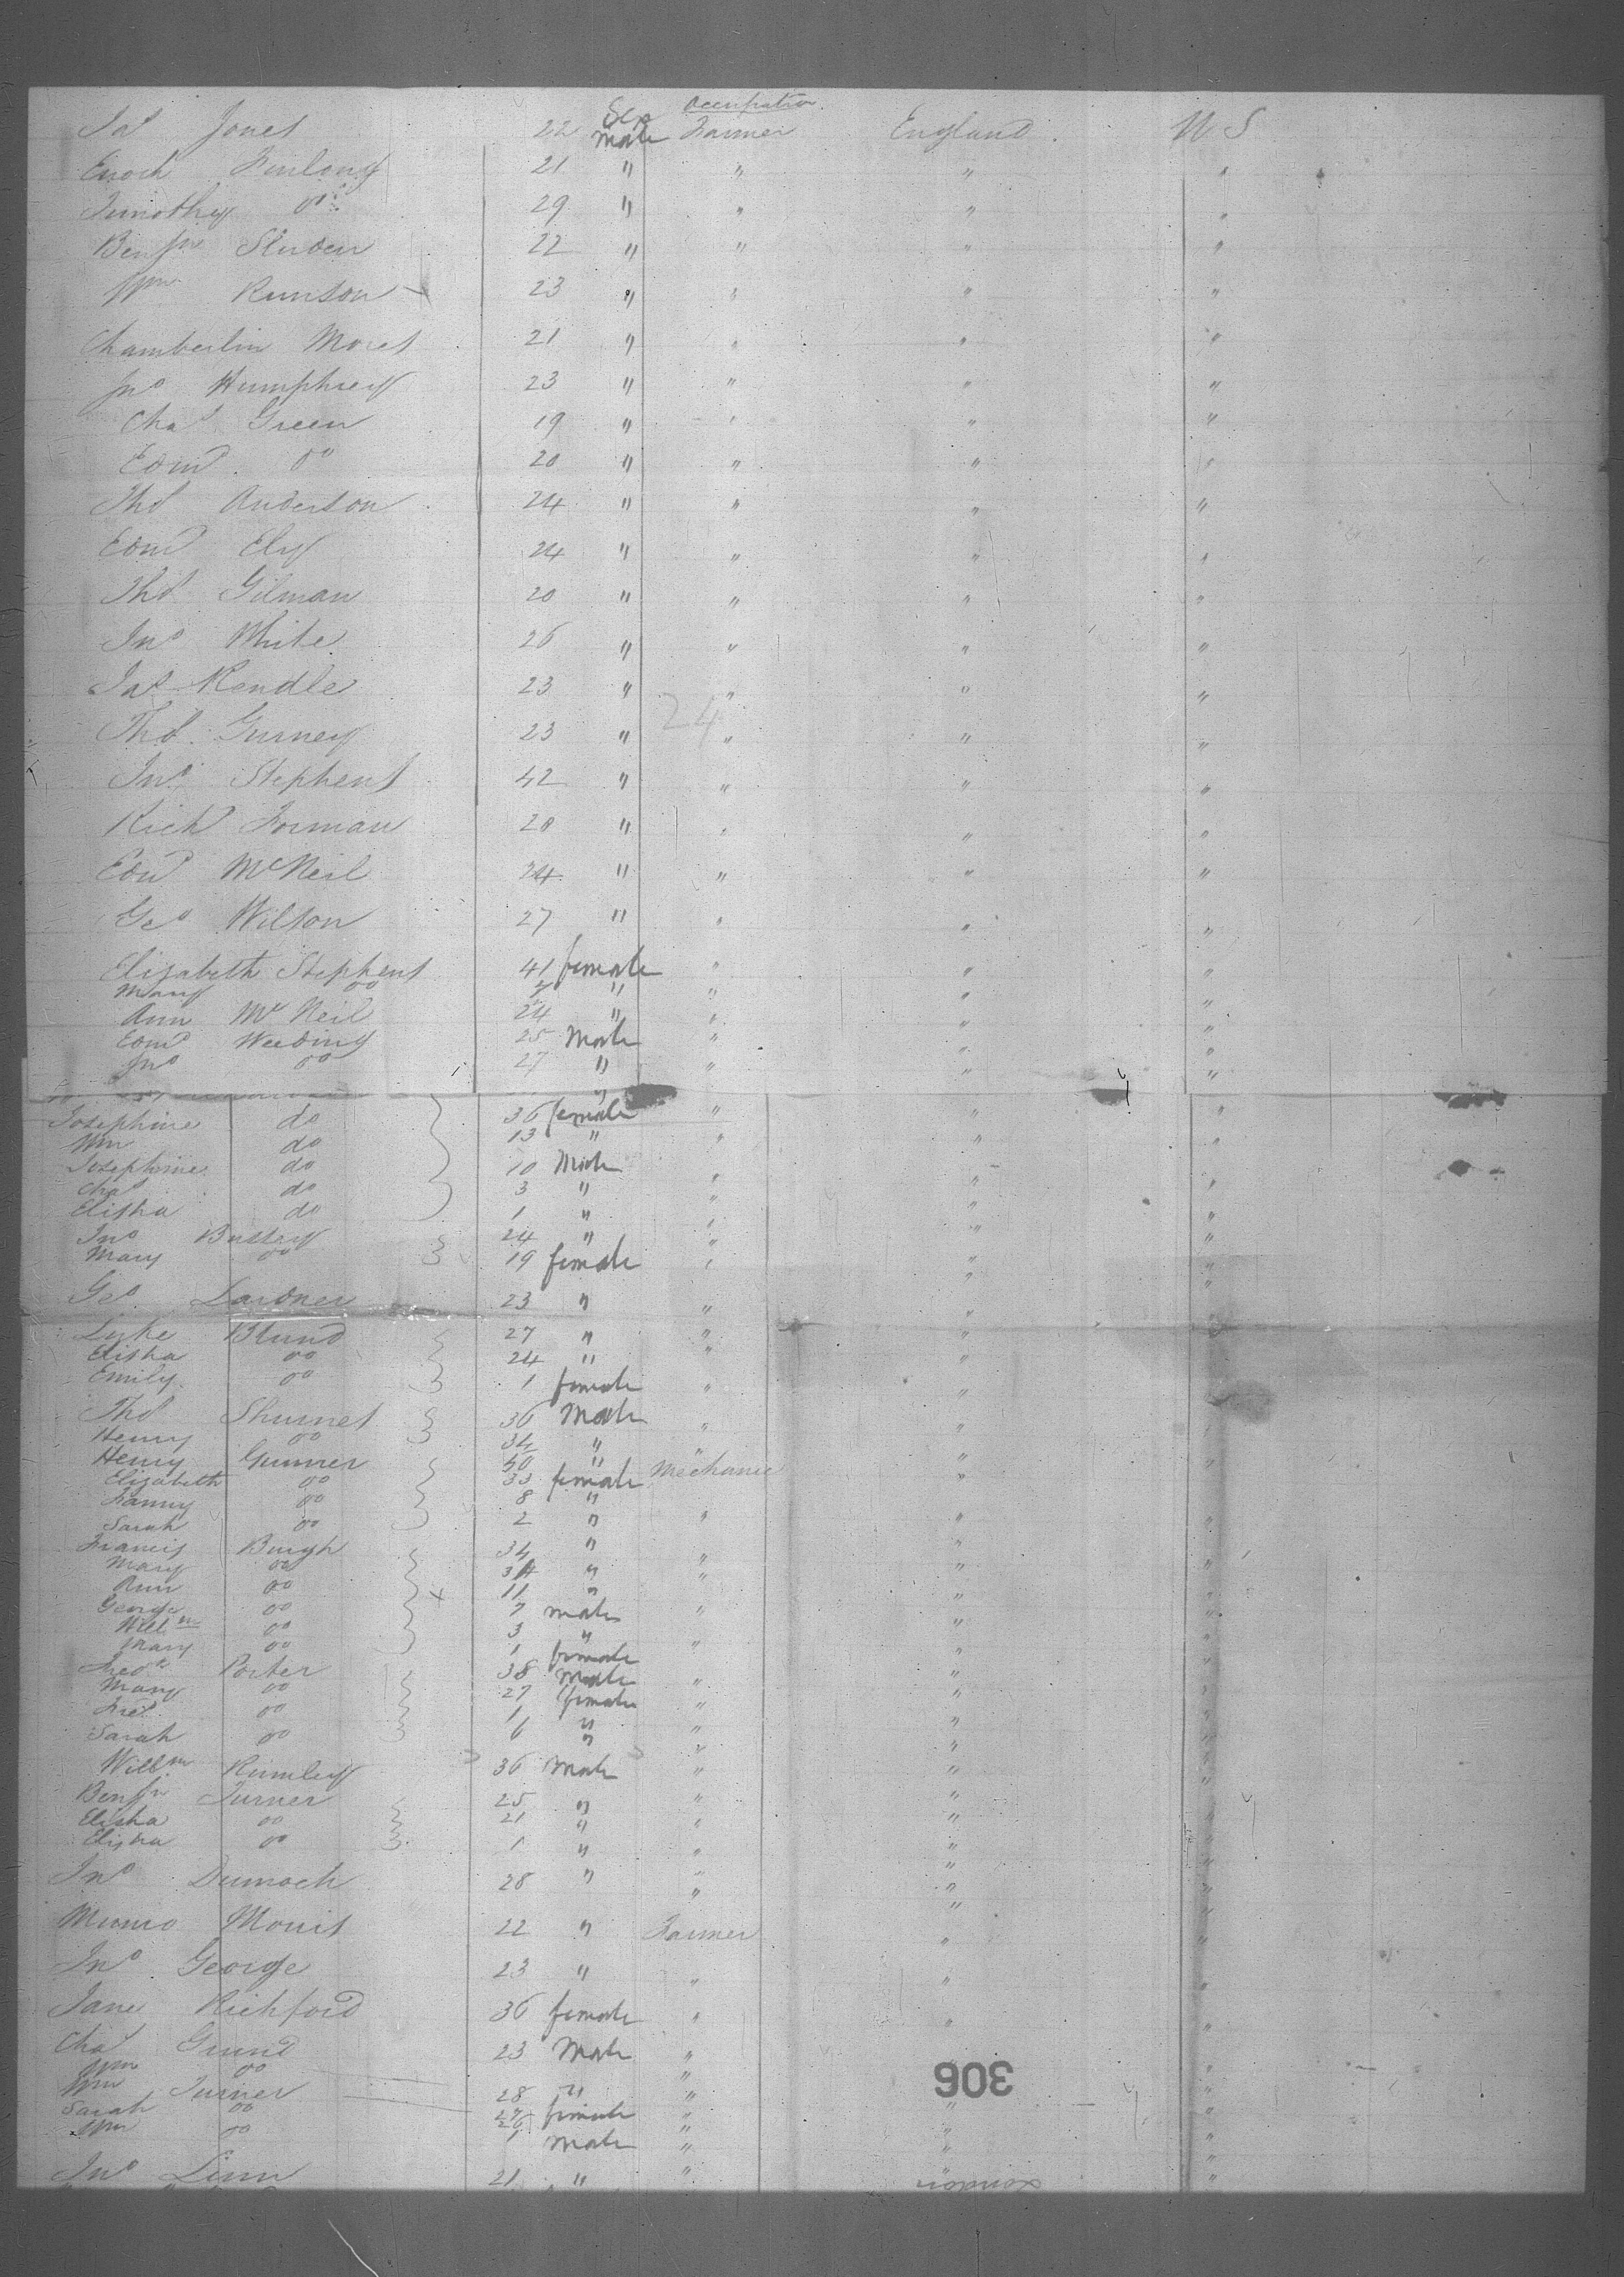 Sex Occupation
Jas Jones 22 Male Farmer England U S
Enoch Furlong 21 " " " "
Timothy Do 29 " " " "
Benjn Sluden 22 " " " "
Wm Runson 23 " " " "
Chamberlin Moses 21 " " " "
Jno Humphrey 23 " " " "
Chas Green 19 " " " "
Edmd Do 20 " " " "
Thos Anderson 24 " " " "
Edmd Ely 24 " " " "
Thos Gilman 20 " " " "
Jno White 26 " " " "
Jas Kendle 23 " " " "
24
Thos Gurney 23 " " " "
Jno Stephens 42 " " " "
Richd Forman 28 " " " "
Edwd McNeil 24 " " " "
Geo Wilson 27 " " " "
Elizabeth Stephens 41 female " " "
Mary Do 7 " " " "
Ann McNeil 24 " " " "
Edmd Weeding 25 Male " " "
Jno Do 27 " " " "
Josephine do 36 female " " "
Wm do 13 " " " "
Josephine do 10 Male " " "
Chas do 3 " " " "
Elisha do 1 " " " "
Jno Bussey 24 " " " "
Mary Do 19 female " " "
Geo Lardner 23 " " " "
Luke Blund 27 " " "
Elisha Do 24 " " "
Emily Do 1 female " "
Thos Shurnes 36 Male " "
Henry Do 34 "
Henry Gunner 50 " Mechanic "
Elizabeth Do 33 female
Fanny Do 8 "
Sarah Do 2 " " " "
Francis Burgh 34 " " " "
Mary Do 34 " " " "
Ann Do 11 " "
George Do 7 male " " "
Willm Do 3 " " "
Mary Do 1 female " " "
Fredk Porter 38 Male " " "
Mary Do 27 female " " "
Fred Do 1 " " " "
Sarah Do 6 " " " "
Willm Rumley 36 Male " " "
Benjn Turner 25 " " " "
Elisha Do 21 " " " "
Elisha Do 1 " " " "
Jno Dumoch 28 " " " "
Munro Moris 22 " Farmer " "
Jno George 23 " " " "
Jane Richford 36 female " " "
Chas Grund 23 Male "
Wm Do " "
306
Wm Turner 28 " " "
Sarah Do 27 female " " "
Wm Do 1 Male " " "
Jno Linn 21 " " " "
London